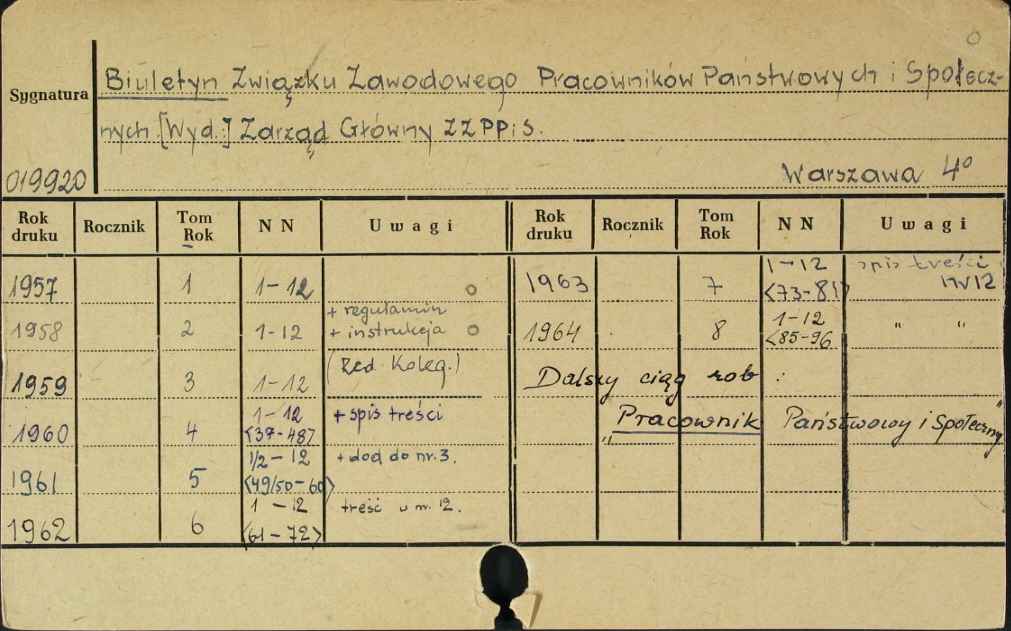 Sygnatura
Biuletyn Związku Zawodowego Pracowników Państwowych i Społecz-
nych. [Wyd.:] Zarząd Główny ZZPPiS.
019920
Warszawa 4°
Rok druku Rocznik Tom Rok NN Uwagi Rok druku Rocznik Tom Rok NN Uwagi
1957 1 1-12 o 1963 7 1-12 <73-81> spis treści
1958 2 1-12 + regulamin + instrukcja o 1964 8 1-12 <85-96 " "
1959 3 1-12 (Red. Koleg.) Dalszy ciąg rob :
1960 4 1-12 <37-48> + spis treści „Pracownik Państwowy i Społeczny"
1961 5 1/2-12 <49/50-60> + dod do nr. 3.
1962 6 1-12 <61-72> treść w nr. 12.